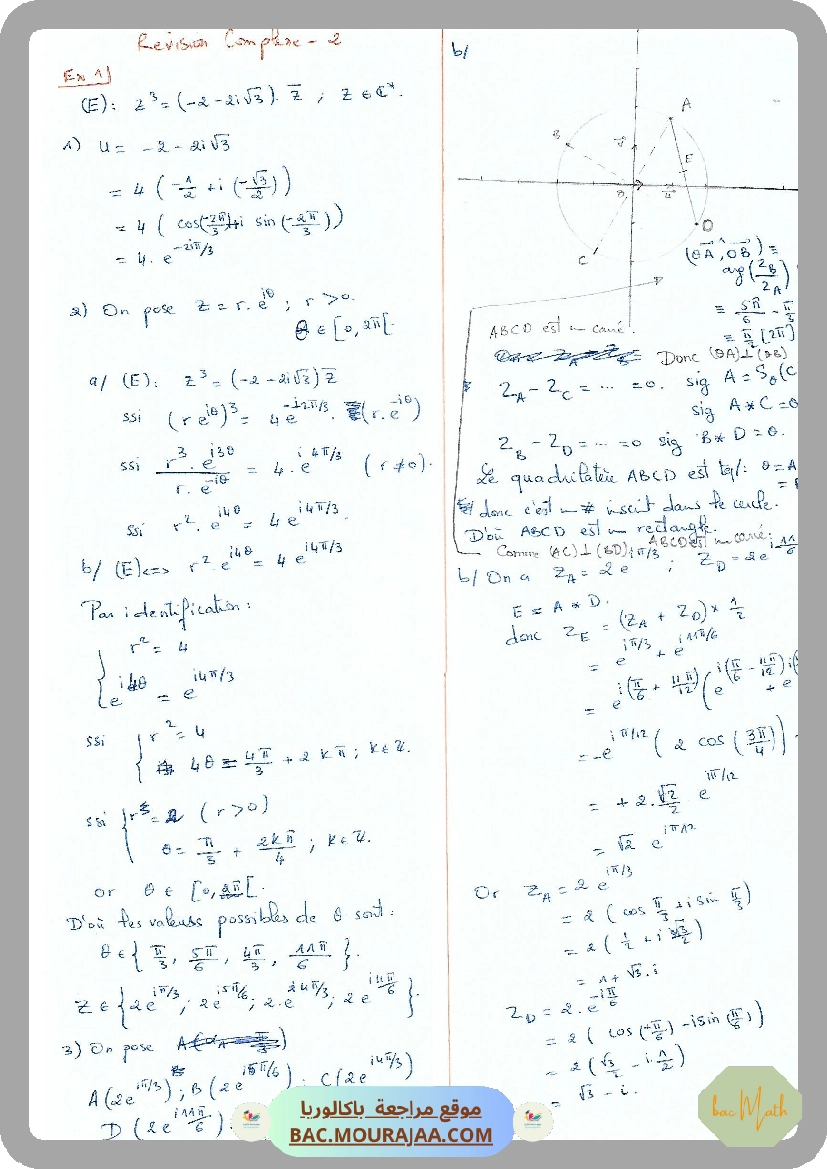 Revision Complexe - 2
Ex 1)
(E): z³ = (-2 - 2i√3). z̄ ; z ∈ ℂ*.
1) u = -2 - 2i√3
= 4 (-1/2 + i (-√3/2))
= 4 ( cos(-2π/3) + i sin(-2π/3))
= 4. e^(-2iπ/3)
2) On pose z = r. e^(iθ) ; r > 0.
θ ∈ [0, 2π[.
a/ (E): z³ = (-2 - 2i√3) z̄
ssi (r e^(iθ))³ = 4 e^(-i2π/3). (r. e^(-iθ))
ssi r³. e^(i3θ) / r. e^(-iθ) = 4. e^(i4π/3) (r ≠ 0).
ssi r². e^(i4θ) = 4 e^(i4π/3).
b/ (E) <=> r². e^(i4θ) = 4 e^(i4π/3)
Par identification :
{ r² = 4
e^(i4θ) = e^(i4π/3)
ssi { r² = 4
4θ = 4π/3 + 2kπ ; k ∈ ℤ.
ssi { r = 2 (r > 0)
θ = π/3 + 2kπ/4 ; k ∈ ℤ.
or θ ∈ [0, 2π[.
D'où les valeurs possibles de θ sont :
θ ∈ { π/3, 5π/6, 4π/3, 11π/6 }.
z ∈ { 2e^(iπ/3); 2e^(i5π/6); 2.e^(i4π/3); 2e^(i11π/6) }.
3) On pose
A(2e^(iπ/3)); B(2e^(i5π/6)); C(2e^(i4π/3))
D (2e^(i11π/6)).
b/
A
B
E
O
D
C
(OA, OB) ≡
arg(z_B/z_A)
≡ 5π/6 - π/3
≡ π/2 [2π]
ABCD est un carré.
Donc (OA) ⊥ (OB)
z_A - z_C = ... = 0. sig A = S_O(C
sig A * C = O
z_B - z_D = ... = 0 sig B * D = O.
Le quadrilatère ABCD est tq/: O = A
donc c'est un # inscit dans le cercle.
D'où ABCD est un rectangle.
Comme (AC) ⊥ (BD), ABCD est un carré.
b/ On a z_A = 2e^(iπ/3) ; z_D = 2e^(i11π/6)
E = A * D.
donc z_E = (z_A + z_D) × 1/2
= e^(iπ/3) + e^(i11π/6)
= e^(i(π/6 + 11π/12)) (e^(i(π/6 - 11π/12)) + e^(i(
= -e^(iπ/12) ( 2 cos (3π/4))
= + 2. √2/2 e^(iπ/12)
= √2 e^(iπ/12)
Or z_A = 2 e^(iπ/3)
= 2 ( cos π/3 + i sin π/3)
= 2 ( 1/2 + i √3/2)
= 1 + √3. i
z_D = 2. e^(-iπ/6)
= 2 ( cos(-π/6) - i sin (π/6))
= 2 ( √3/2 - i. 1/2)
= √3 - i.
موقع مراجعة باكالوريا
BAC.MOURAJAA.COM
bac Math